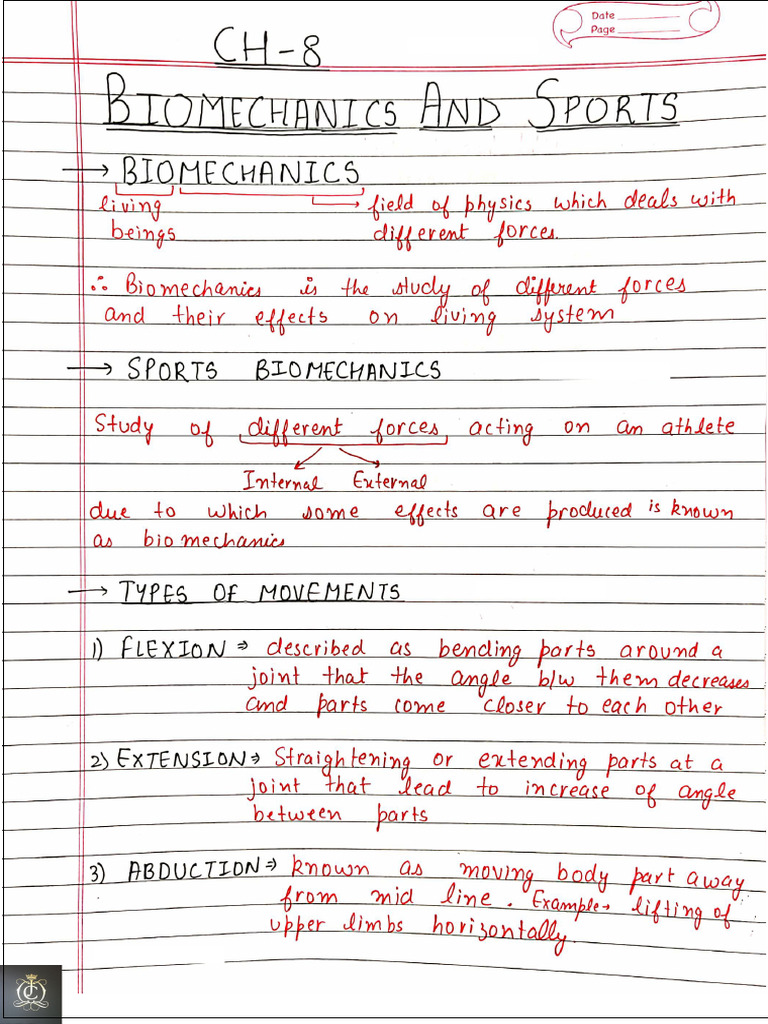 Date
Page
CH-8
BIOMECHANICS AND SPORTS
→ BIOMECHANICS
living → field of physics which deals with
beings different forces.
∴ Biomechanics is the study of different forces
and their effects on living system
→ SPORTS BIOMECHANICS
Study of different forces acting on an athlete
Internal External
due to which some effects are produced is known
as biomechanics
→ TYPES OF MOVEMENTS
1) FLEXION ⇒ described as bending parts around a
joint that the angle b/w them decreases
and parts come closer to each other
2) EXTENSION ⇒ Straightening or extending parts at a
joint that lead to increase of angle
between parts
3) ABDUCTION ⇒ known as moving body part away
from mid line. Example → lifting of
upper limbs horizontally.